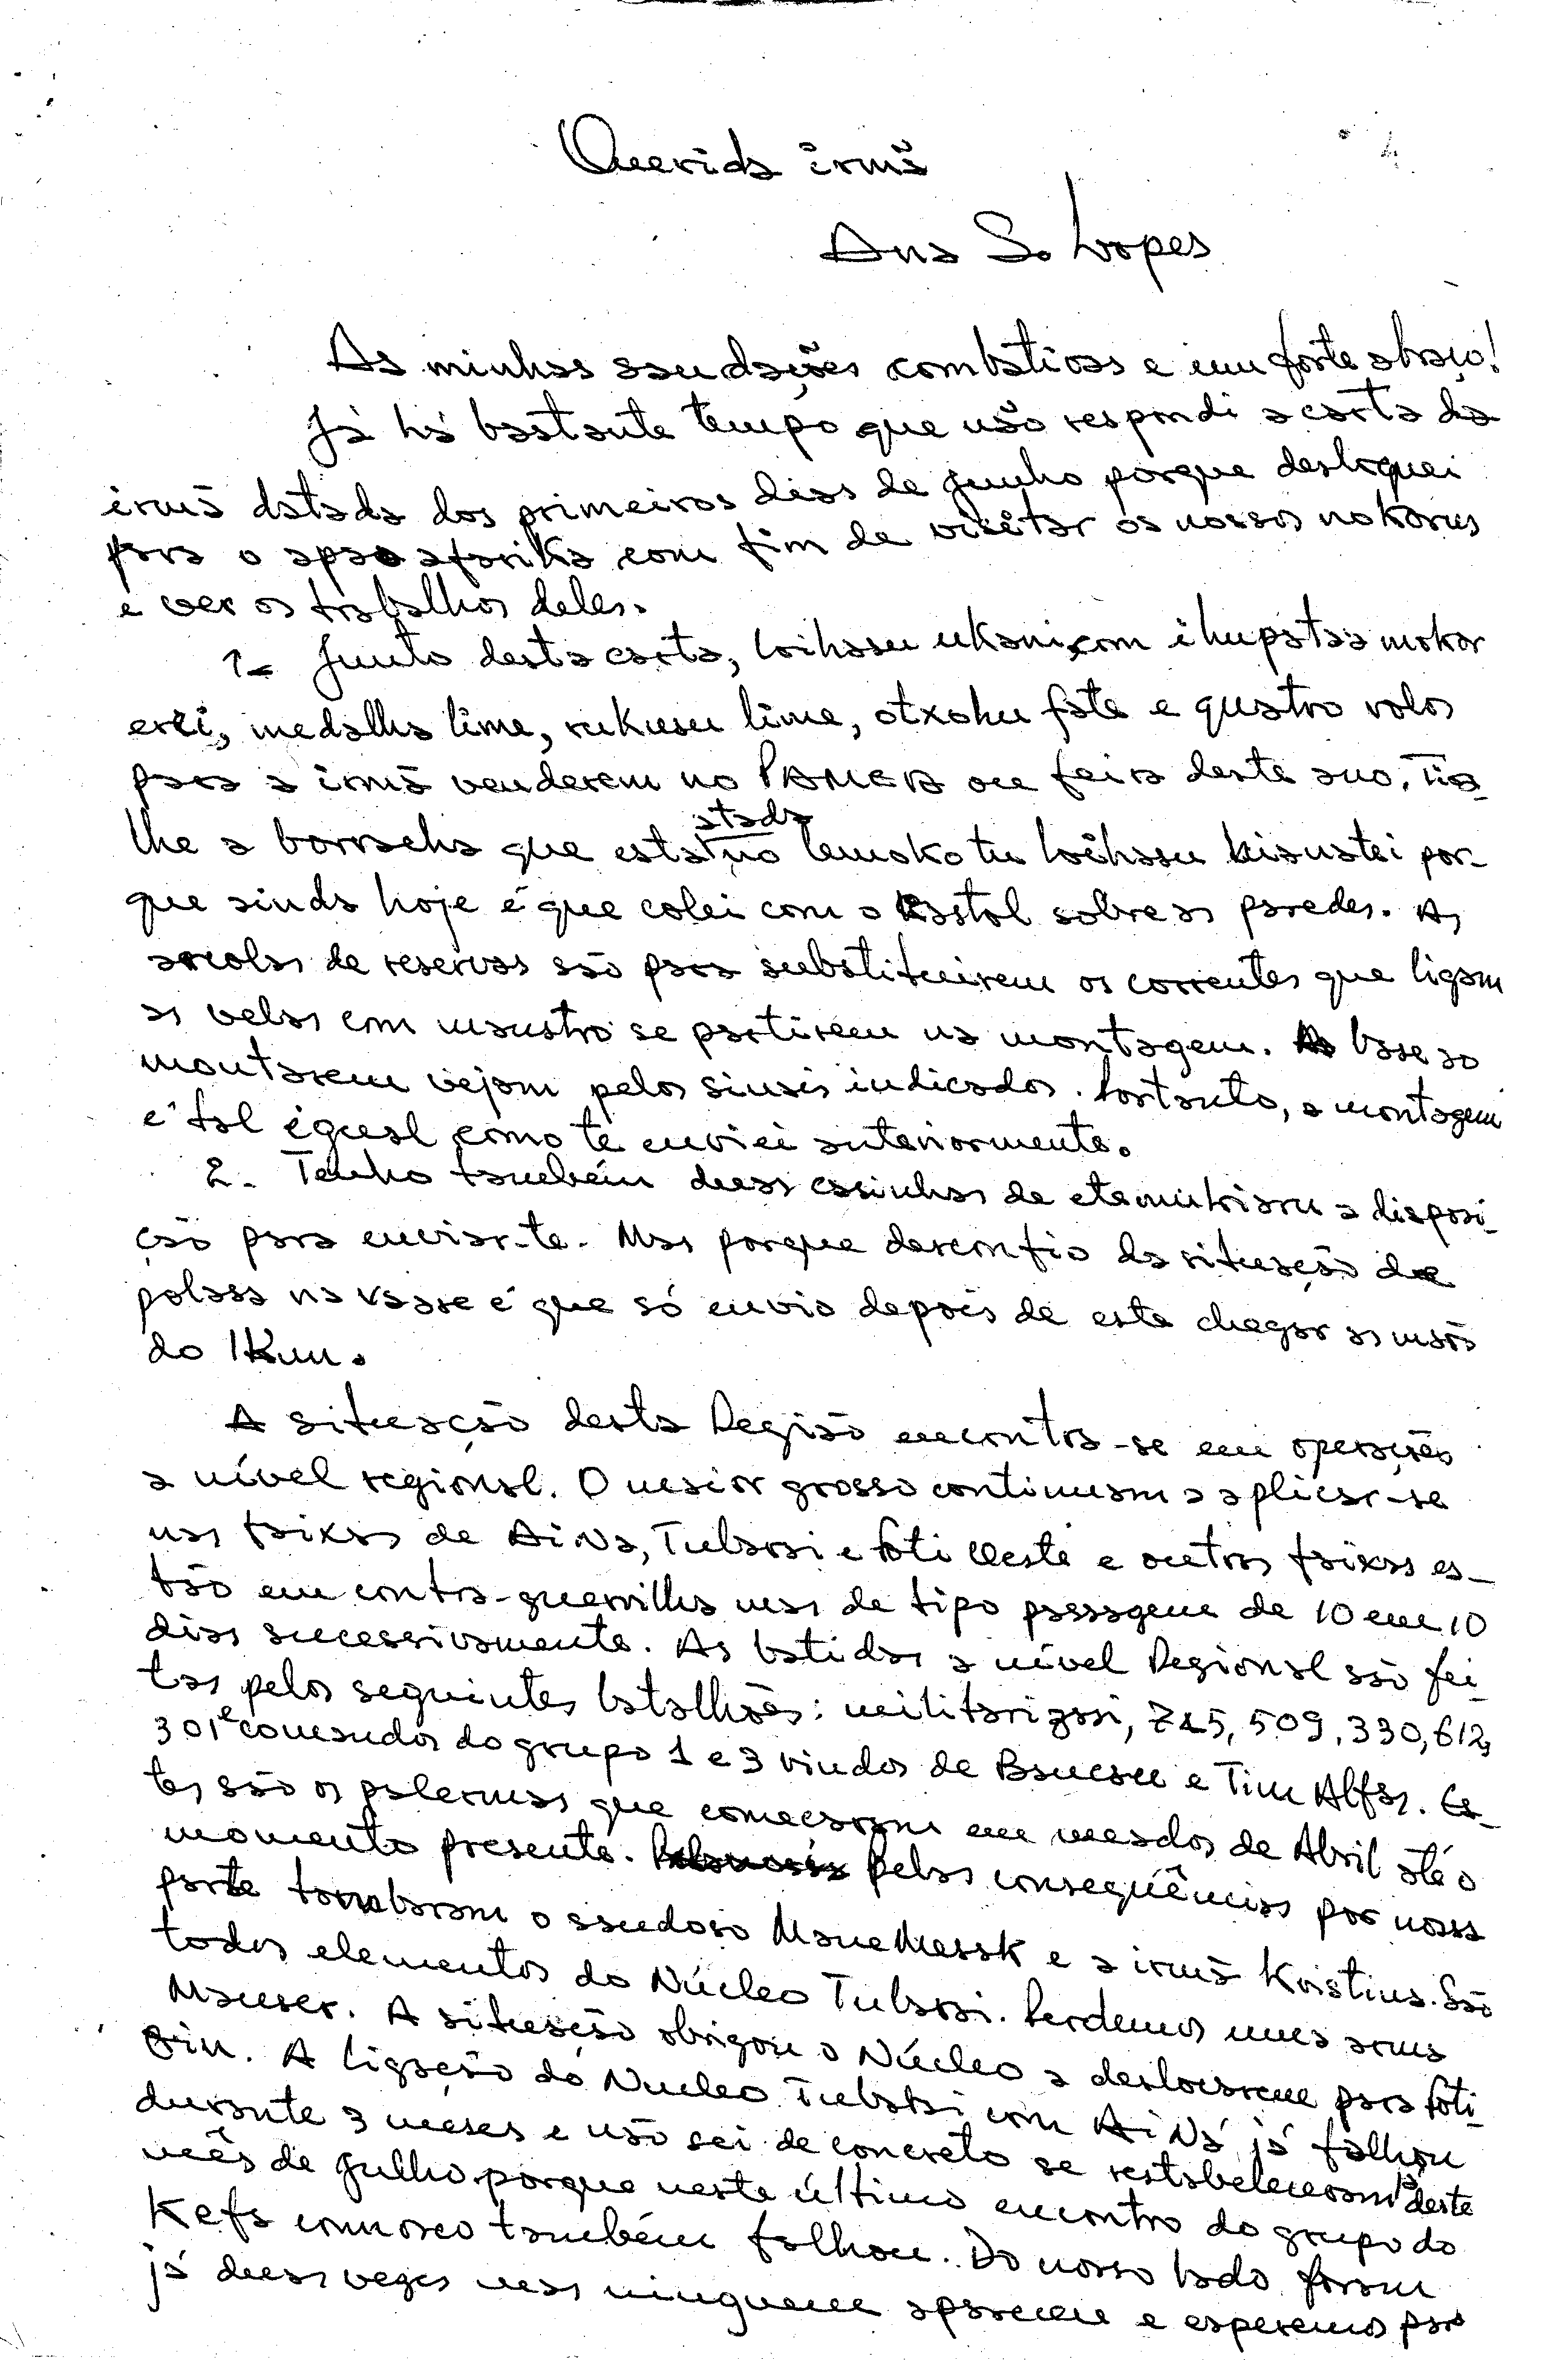 Querida irmã
Ana S. Lopes
As minhas saudações combativas e um forte abraço!
Já há bastante tempo que não respondi a carta da
irmã datada dos primeiros dias de Junho porque desloquei
para o apao afarika com fim de visitar os nossos nokorus
e ver os trabalhos deles.
1- Junto desta carta, loihasu ukani, com ihupataa mokor
erei, medalha lima, rukusu lima, otxohu fata e quatro rolos
para a irmã venderem no PAMERA ou feira deste ano. Tira-
lhe a borracha que esta atada no lemoko tu loihasu kianatei por-
que ainda hoje é que colei com o kastol sobre as paredes. As
arcolas de reservas são para substituirem os correntes que ligam
as velas com maustro se partirem na montagem. As base ao
montarem vejam pelos sinais indicados. Portanto, a montagem
é tal équal como te enviei anteriormente.
2- Tenho também duas casinhas de etamukiaru a disposi-
ção para enviar-te. Mas porque desconfio da situação de
polasa na vaase é que só envio depois de esta chegar as mãos
do IKun.
A situação desta Região encontra-se em operações
a nível regional. O maior grosso continuam a aplicar-se
nas faixas de AiNa, Tubarai e Foti Oeste e outras faixas es-
tão em contra-guerrilha mas de tipo passagem de 10 em 10
dias sucessivamente. As batidas a nível Regional são fei-
tas pelos seguintes batalhões: militarizasi, 745, 509, 330, 612,
301 e comandos do grupo 1 e 3 vindos de Baucau e Tim Alfas. Es-
tes são os palermas que começaram em meados de Abril até o
momento presente. Pelas consequências por nossa
parte tombaram o saudoso Maue Messak e a irmã Kristina. São
todos elementos do Núcleo Tubarai. Perdemos uma arma
Mauser. A situação obrigou o Núcleo a deslocarem para Foti-
Oin. A ligação do Nucleo Tubarai com AiNá já falhou
durante 3 meses e não sei de concreto se restabeleceram já deste
mês de Julho porque neste último encontro do grupo do
Kefa connosco também falhou. Do nosso lado foram
já duas vezes mas ninguem apareceu e esperemos para